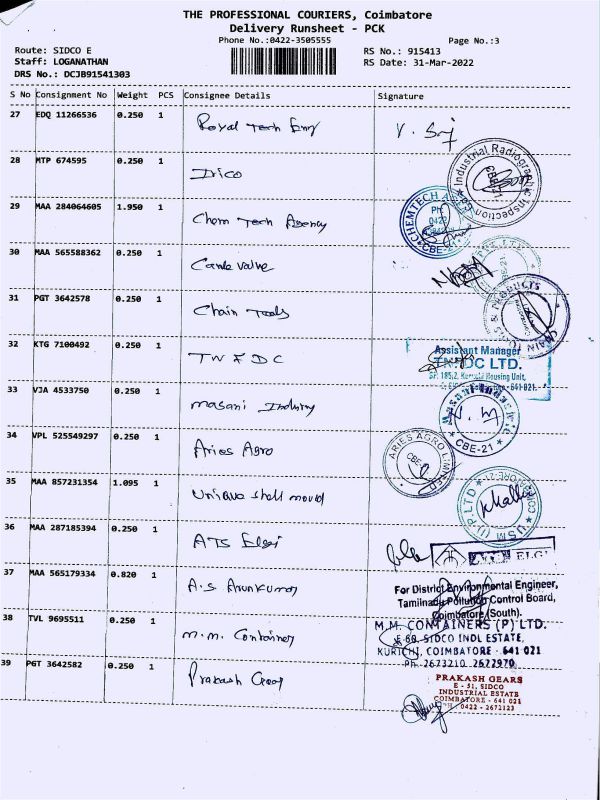 THE PROFESSIONAL COURIERS, Coimbatore
Delivery Runsheet - PCK
Phone No.:0422-3505555
Page No.:3
Route: SIDCO E
RS No.: 915413
Staff: LOGANATHAN
RS Date: 31-Mar-2022
DRS No.: DCJB91541303
S No Consignment No Weight PCS Consignee Details Signature
27 EDQ 11266536 0.250 1 Royal Tech Engg
28 MTP 674595 0.250 1 Irico
Industrial Radiographic Inspection
CBE-21
29 MAA 284064605 1.950 1 Chem Tech Agency
CHEMTECH
PH:
0422
CBE-21
30 MAA 565588362 0.250 1 valve
CBE-21
31 PGT 3642578 0.250 1 Chain Tools
CHAIN & PRODUCTS
32 KTG 7100492 0.250 1
Assistant Manager
DC LTD.
Housing Unit,
641 021.
33 VJA 4533750 0.250 1 masani Industry
CBE-21
34 VPL 525549297 0.250 1 Aries Agro
ARIES AGRO LIMITED
CBE
35 MAA 857231354 1.095 1 shell mould
USM (I) P LTD
36 MAA 287185394 0.250 1 ATS Elgi
ELGI
37 MAA 565179334 0.820 1 A.S Arunkumar
For District Environmental Engineer,
Tamilnadu Pollution Control Board,
Coimbatore (South).
38 TVL 9695511 0.250 1 m.m. Container
M.M. CONTAINERS (P) LTD.
E-68, SIDCO INDL ESTATE,
KURICHI, COIMBATORE - 641 021
Ph. 2673210 2672970
39 PGT 3642582 0.250 1 Prakash Gear
PRAKASH GEARS
E - 51, SIDCO
INDUSTRIAL ESTATE
COIMBATORE - 641 021
0422 - 2672123